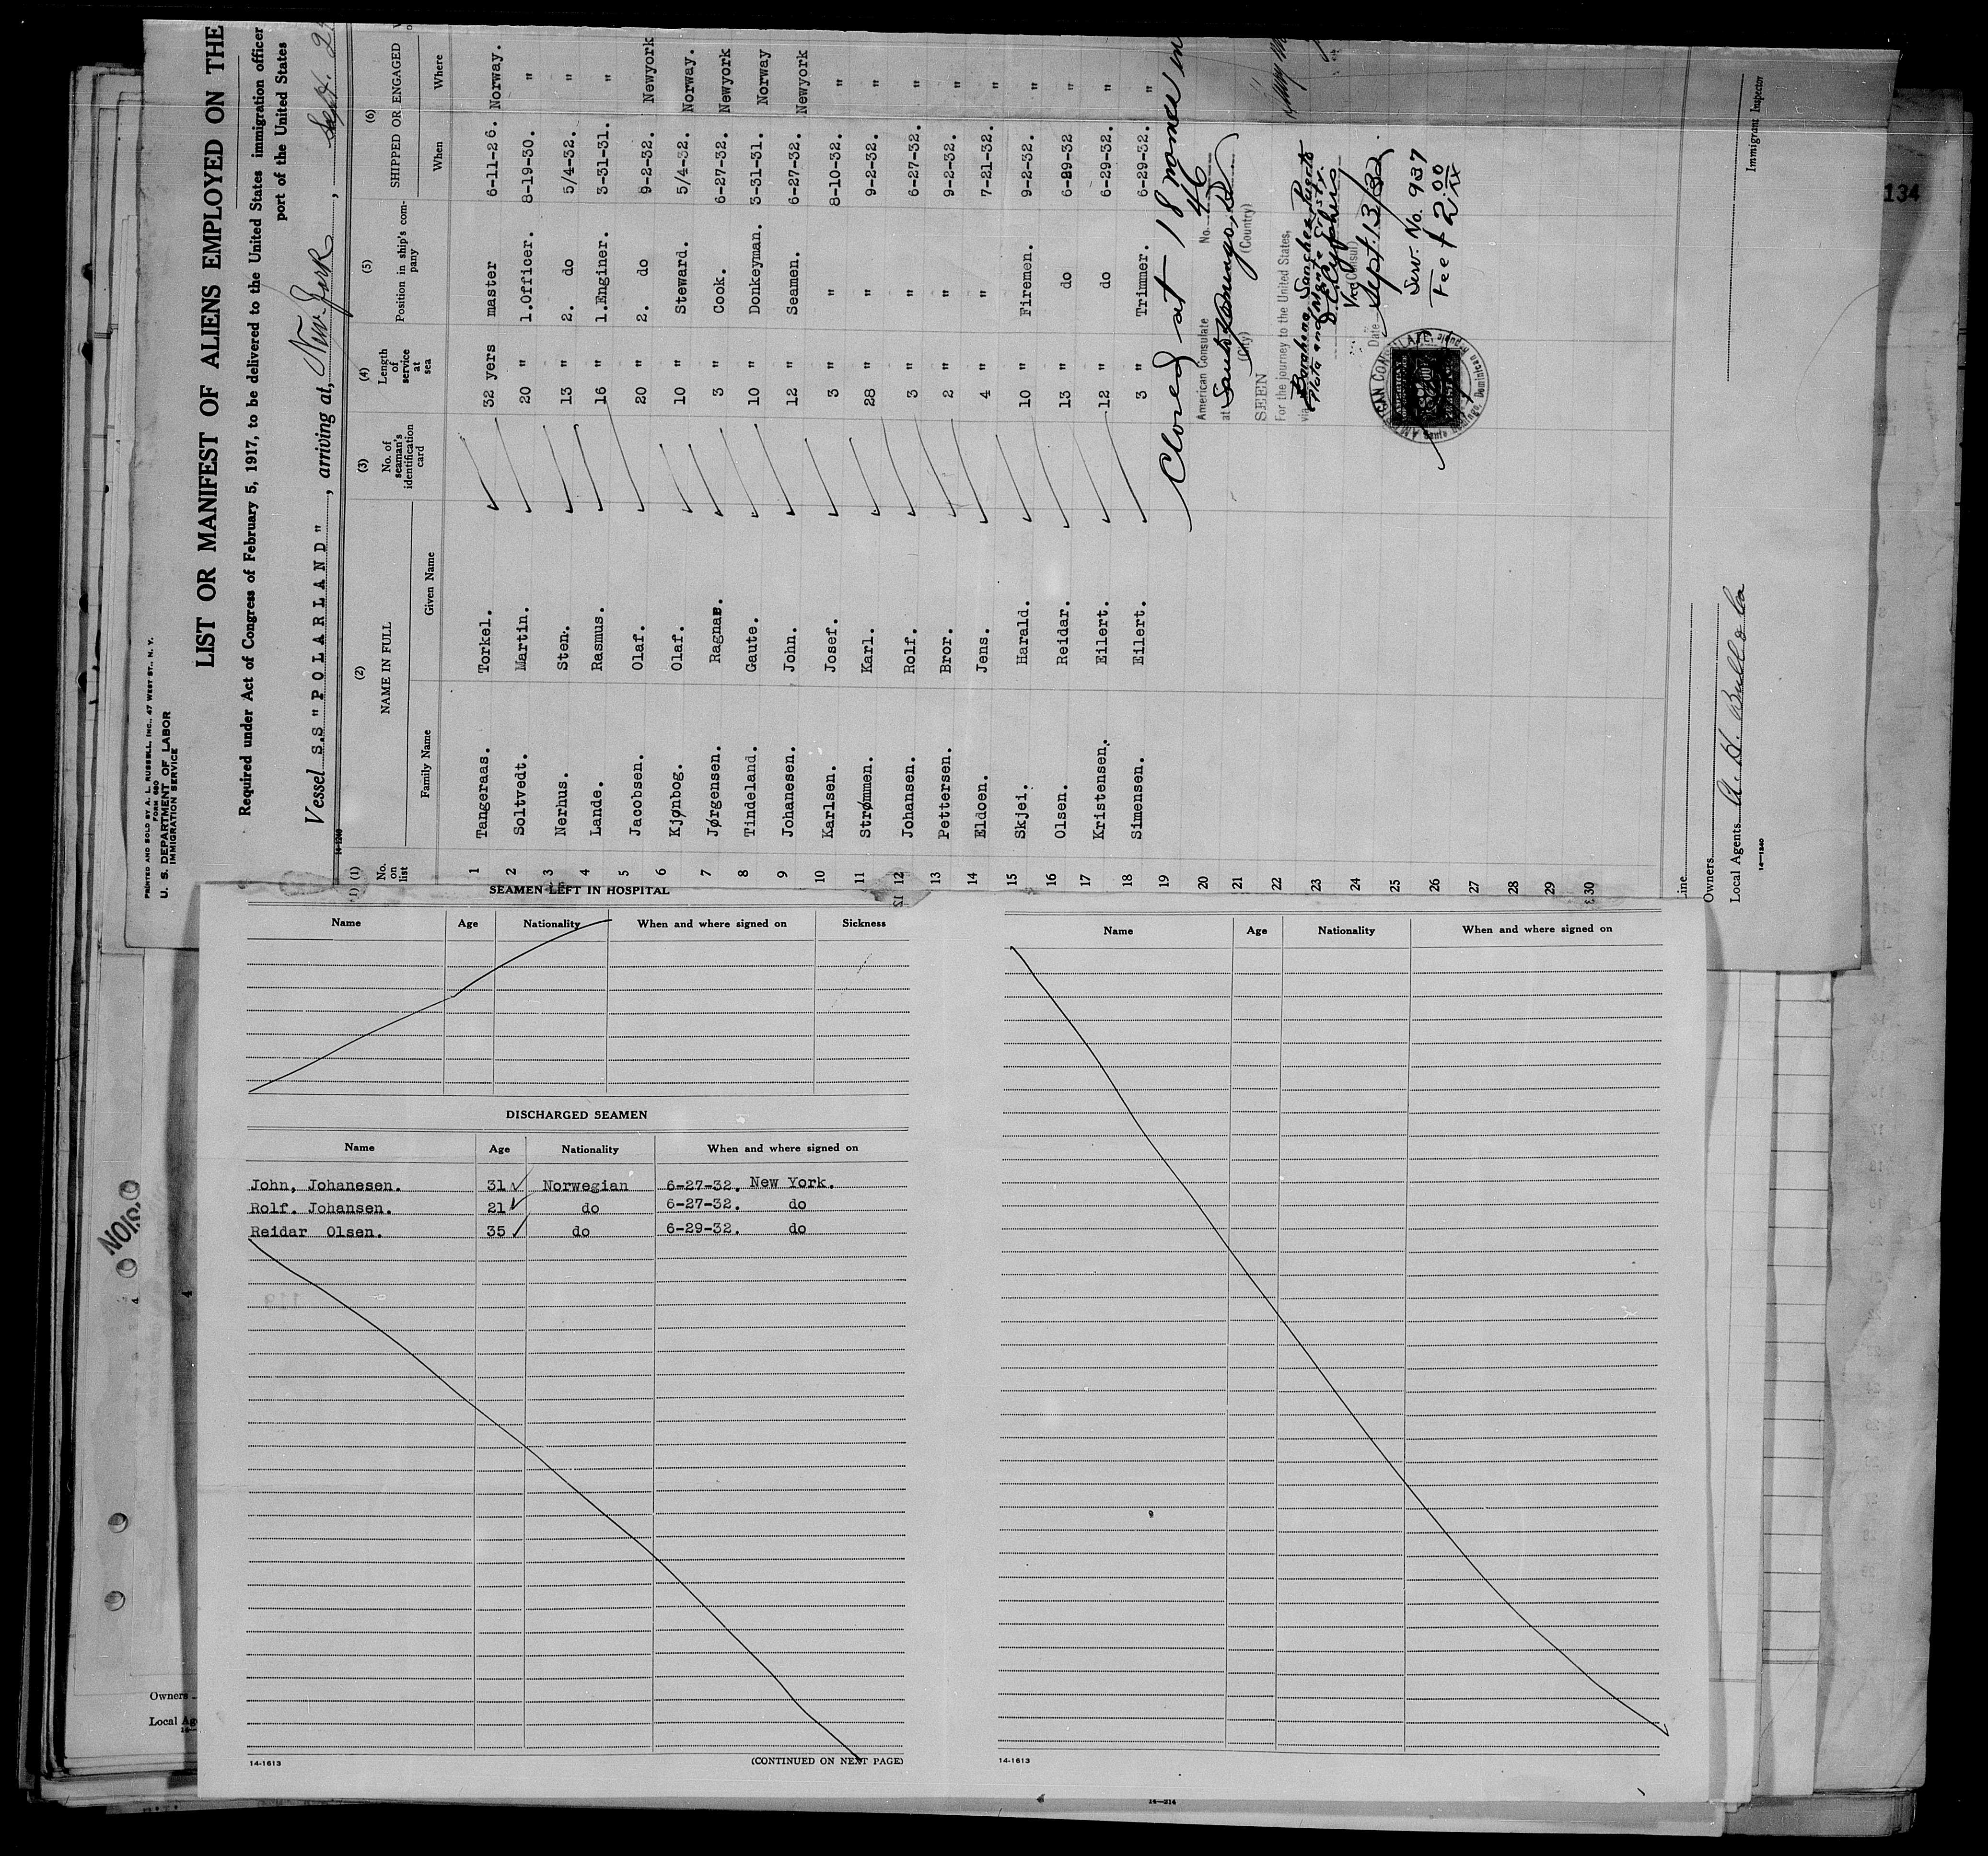 PRINTED AND SOLD BY A. L. RUSSELL, INC., 47 WEST ST., N. Y.
FORM 680
U. S. DEPARTMENT OF LABOR
IMMIGRATION SERVICE
LIST OR MANIFEST OF ALIENS EMPLOYED ON THE
Required under Act of Congress of February 5, 1917, to be delivered to the United States immigration officer
port of the United States
Vessel S.S "POLARLAND", arriving at, New York, Sept. 2
14-1240
(1) (2) (3) (4) (5) (6)
No. on list NAME IN FULL No. of seaman's identification card Length of service at sea Position in ship's company SHIPPED OR ENGAGED
Family Name Given Name When Where
1 Tangeraas. Torkel. 32 yers master 6-11-26. Norway.
2 Soltvedt. Martin. 20 " 1.Officer. 8-19-30. "
3 Nerhus. Sten. 13 " 2. do 5/4-32. "
4 Lande. Rasmus. 16 " 1.Enginer. 3-31-31. "
5 Jacobsen. Olaf. 20 " 2. do 9-2-32. Newyork
6 Kjønbog. Olaf. 10 " Steward. 5/4-32. Norway.
7 Jørgensen. Ragnar. 3 " Cook. 6-27-32. Newyork
8 Tindeland. Gaute. 10 " Donkeyman. 3-31-31. Norway
9 Johanesen. John. 12 " Seamen. 6-27-32. Newyork
10 Karlsen. Josef. 3 " " 8-10-32. "
11 Strømmen. Karl. 28 " " 9-2-32. "
12 Johansen. Rolf. 3 " " 6-27-32. "
13 Pettersen. Bror. 2 " " 9-2-32. "
14 Eldoen. Jens. 4 " " 7-21-32. "
15 Skjei. Harald. 10 " Firemen. 9-2-32. "
16 Olsen. Reidar. 13 " do 6-29-32 "
17 Kristensen. Eilert. 12 " do 6-29-32. "
18 Simensen. Eilert. 3 " Trimmer. 6-29-32. "
19 Closed at 18 names
20 American Consulate No. 46
21 at Santo Domingo, D.R.
(City) (Country)
22 SEEN
For the journey to the United States,
23 via Barahona, Sanchez, Puerto
Plata and
24 Vice Consul
Date Sept. 13/32
25 Serv. No. 937
26 Fee $ 2.00
AMERICAN CONSULATE
Dominican Republic
27
28
29
30
Line
Owners
Local Agents A. H. Bull & Co
14-1240
Immigrant Inspector
134
SEAMEN LEFT IN HOSPITAL
Name Age Nationality When and where signed on Sickness
DISCHARGED SEAMEN
Name Age Nationality When and where signed on
John, Johanesen. 31 Norwegian 6-27-32. New York.
Rolf. Johansen. 21 do 6-27-32. do
Reidar Olsen. 35 do 6-29-32. do
14-1613
(CONTINUED ON NEXT PAGE)
Name Age Nationality When and where signed on
14-1613
14-214
Owners
Local Ag